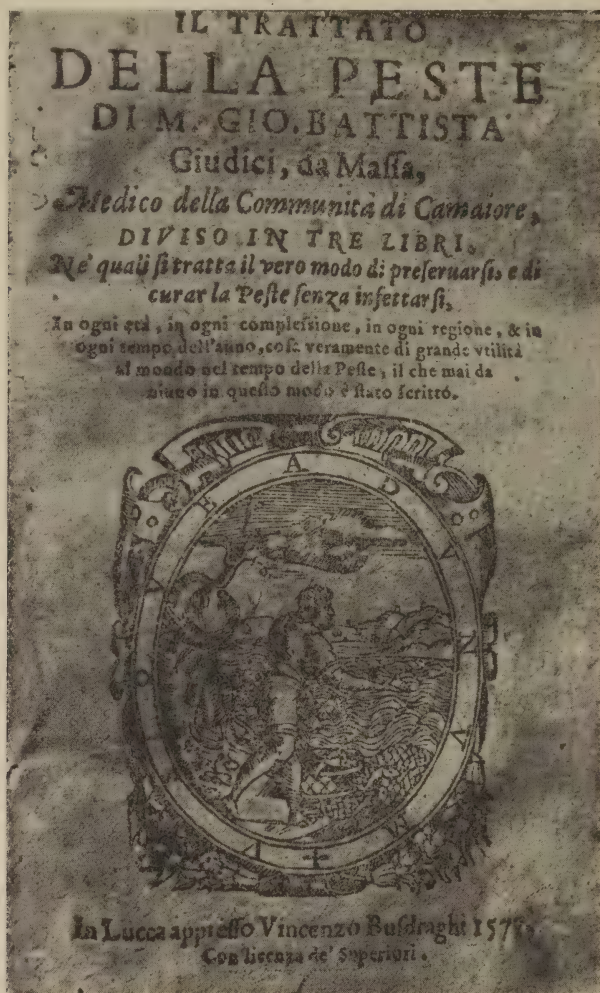 IL TRATTATO
DELLA PESTE
DI M. GIO. BATTISTA
Giudici, da Maſſa,
Medico della Communità di Camaiore,
DIVISO IN TRE LIBRI.
Ne' quali ſi tratta il vero modo di preſeruarſi, e di
curar la Peſte ſenza infettarſi,
In ogni età, in ogni compleſſione, in ogni regione, & in
ogni tempo dell'anno, coſa veramente di grande vtilità
al mondo nel tempo della Peſte, il che mai da
niuno in queſto modo è ſtato ſcritto.
In Lucca appreſſo Vincenzo Buſdraghi
Con licenza de' Superiori.